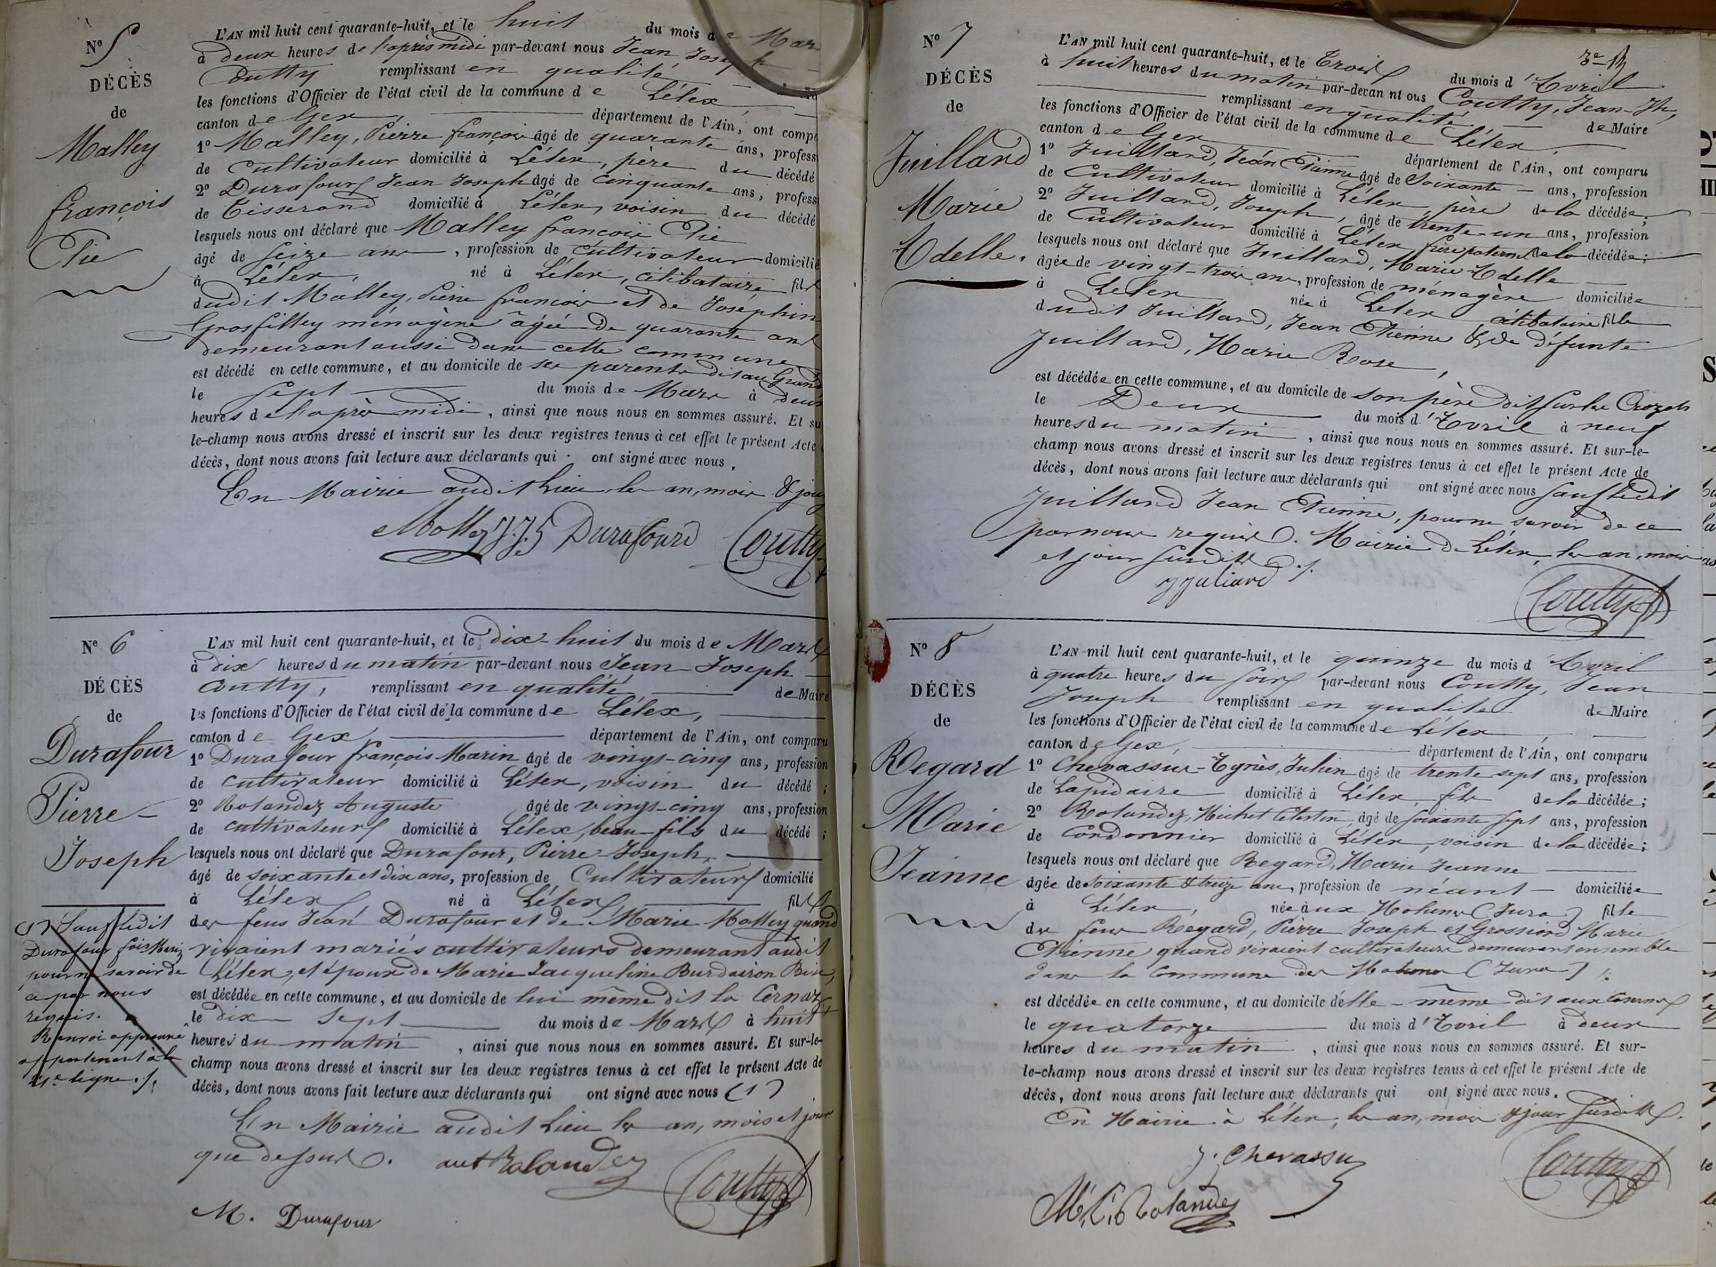 N° 5
DÉCÈS
de
Malley
françois
Pie
L'AN mil huit cent quarante-huit, et le huit du mois de Mar
à deux heures de l'après midi par-devant nous Jean Joseph
Coutty remplissant en qualité
les fonctions d'Officier de l'état civil de la commune de Lélex,
canton de Gex département de l'Ain, ont comp
1° Malley, Pierre françois âgé de quarante ans, profess
de Cultivateur domicilié à Lélex, père du décédé
2° Durafour Jean Joseph âgé de cinquante ans, profess
de Tisserand domicilié à Lélex, voisin du décédé
lesquels nous ont déclaré que Malley françois Pie
âgé de seize ans, profession de cultivateur domicilié
à Lélex, né à Lélex, célibataire fils
dudit Malley, Pierre françois et de Joséphin
Grosfilley ménagère âgée de quarante ans
demeurant aussi dans cette commune
est décédé en cette commune, et au domicile de ses parents dit au Grand
le sept du mois de Mars à deux
heures de l'après midi, ainsi que nous nous en sommes assuré. Et su
le-champ nous avons dressé et inscrit sur les deux registres tenus à cet effet le présent Acte
décès, dont nous avons fait lecture aux déclarants qui ont signé avec nous.
En Mairie audit Lieu les an, mois & jou
Malley J.J.h Durafourd Coutty
N° 6
DÉCÈS
de
Durafour
Pierre
Joseph
L'AN mil huit cent quarante-huit, et le dix-huit du mois de Mars
à dix heures du matin par-devant nous Jean Joseph
Coutty, remplissant en qualité de Maire
les fonctions d'Officier de l'état civil de la commune de Lélex,
canton de Gex, département de l'Ain, ont comparu
1° Durafour françois-Marin âgé de vingt-cinq ans, profession
de cultivateur domicilié à Lélex, voisin du décédé ;
2° Rolandez Auguste âgé de vingt-cinq ans, profession
de cultivateur domicilié à Lélex, beau-fils du décédé ;
lesquels nous ont déclaré que Durafour, Pierre Joseph,
âgé de soixante et dix ans, profession de Cultivateur domicilié
à Lélex né à Lélex fils
des feus Jean Durafour et de Marie Malley quand
vivaient mariés cultivateurs demeurant audit
Lélex, et époux de Marie Jacqueline Burdairon
est décédée en cette commune, et au domicile de lui même dit la Cernaz
le dix-sept du mois de Mars à huit
heures du matin, ainsi que nous nous en sommes assuré. Et sur-le-
champ nous avons dressé et inscrit sur les deux registres tenus à cet effet le présent Acte de
décès, dont nous avons fait lecture aux déclarants qui ont signé avec nous (1)
En Mairie audit Lieu les an, mois et jour
que dessus. aut Rolandez Coutty
M. Durafour
(1) Sauf ledit
Durafour
pour ne savoir de
ce par nous
requis.
Renvoi approuvé
appartenant à la
ligne ./.
N° 7
DÉCÈS
de
Juilland
Marie
Adelle.
L'AN mil huit cent quarante-huit, et le Trois du mois d'Avril
à huit heures du matin par-devant nous Coutty, Jean-Jh,
remplissant en qualité de Maire
les fonctions d'Officier de l'état civil de la commune de Lélex,
canton de Gex département de l'Ain, ont comparu
1° Juilland, Jean Etienne âgé de Soixante ans, profession
de Cultivateur domicilié à Lélex père de la décédée;
2° Juilland, Joseph, âgé de trente-un ans, profession
de Cultivateur domicilié à Lélex de la décédée;
lesquels nous ont déclaré que Juilland, Marie Adelle
âgée de vingt-trois ans, profession de ménagère domiciliée
à Lélex née à Lélex célibataire fille
dudit Juilland, Jean Etienne & de défunte
Juilland, Marie Rose,
est décédée en cette commune, et au domicile de son père dit sur les Crozets
le Deux du mois d'Avril à neuf
heures du matin, ainsi que nous nous en sommes assuré. Et sur-le-
champ nous avons dressé et inscrit sur les deux registres tenus à cet effet le présent Acte de
décès, dont nous avons fait lecture aux déclarants qui ont signé avec nous sauf ledit
Juilland Jean Etienne, pour ne savoir de ce
par nous requis. Mairie de Lélex, les an, mois
et jour susdits ./.
J juliard Coutty
N° 8
DÉCÈS
de
Regard
Marie
Jeanne
L'AN mil huit cent quarante-huit, et le quinze du mois d Avril
à quatre heures du soir par-devant nous Coutty, Jean
Joseph remplissant en qualité de Maire
les fonctions d'Officier de l'état civil de la commune de Lélex
canton de Gex, département de l'Ain, ont comparu
1° Chevassus-Agnès, Julien âgé de trente sept ans, profession
de Lapidaire domicilié à Lélex fils de la décédée;
2° Rolandez, Michel Célestin, âgé de soixante sept ans, profession
de Cordonnier domicilié à Lélex, voisin de la décédée;
lesquels nous ont déclaré que Regard, Marie Jeanne
âgée de soixante & treize ans, profession de néant domiciliée
à Lélex, née aux Molunes (Jura) fille
des feus Regard, Pierre Joseph et Grossiord Marie
Etienne quand vivaient cultivateurs demeurant ensemble
dans la Commune des Molunes (Jura) ,
est décédée en cette commune, et au domicile d'elle-même dit aux
le quatorze du mois d'Avril à deux
heures du matin, ainsi que nous nous en sommes assuré. Et sur-
le-champ nous avons dressé et inscrit sur les deux registres tenus à cet effet le présent Acte de
décès, dont nous avons fait lecture aux déclarants qui ont signé avec nous.
En Mairie à Lélex, les an, mois & jour susdits.
J. Chevassu Coutty
M. C. Rolandez